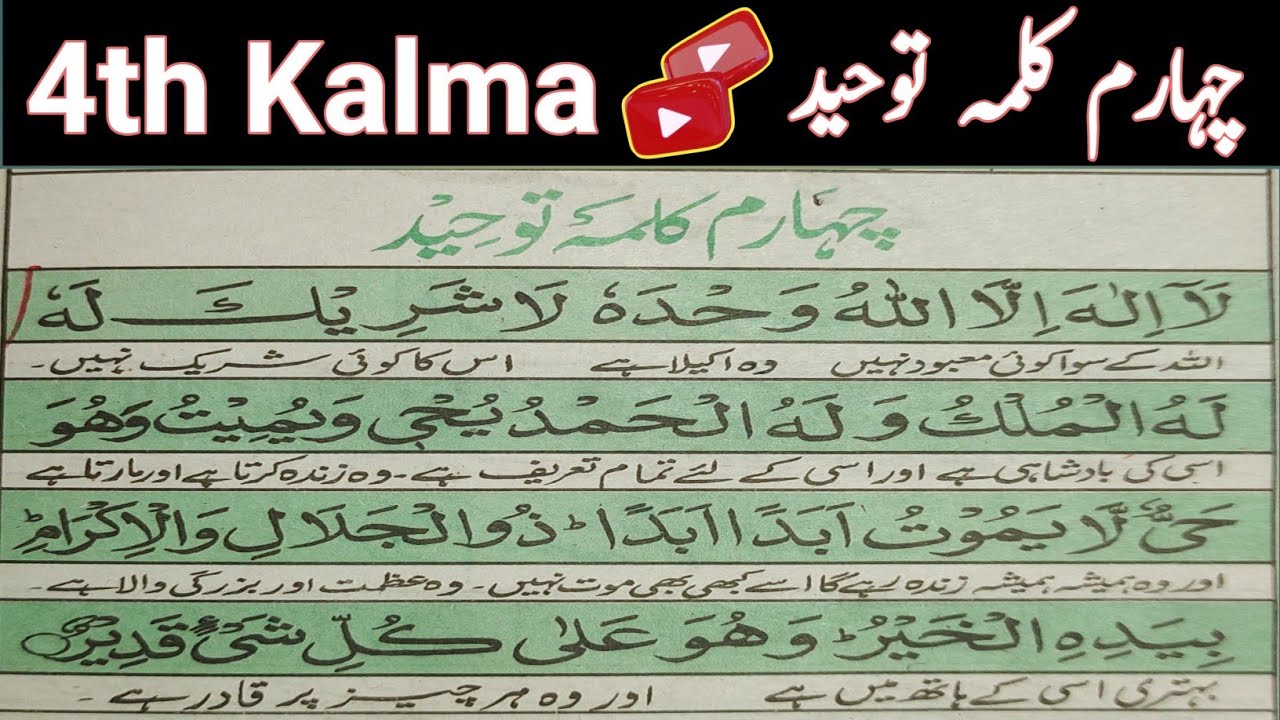 4th Kalma چہارم کلمہ توحید
چہارم کلمۂ توحِیْد
لَآ اِلٰهَ اِلَّا اللّٰهُ وَحْدَهٗ لَا شَرِيْكَ لَهٗ
اللہ کے سوا کوئی معبود نہیں وہ اکیلا ہے اس کا کوئی شریک نہیں۔
لَهُ الْمُلْكُ وَ لَهُ الْحَمْدُ يُحْيٖ وَيُمِيْتُ وَهُوَ
اسی کی بادشاہی ہے اور اسی کے لئے تمام تعریف ہے۔ وہ زندہ کرتا ہے اور مارتا ہے
حَیٌّ لَّا يَمُوْتُ اَبَدًا اَبَدًا ؕ ذُو الْجَلَالِ وَالْاِكْرَامِ ؕ
اور وہ ہمیشہ ہمیشہ زندہ رہے گا اسے کبھی بھی موت نہیں۔ وہ عظمت اور بزرگی والا ہے۔
بِيَدِهِ الْخَيْرُ ؕ وَهُوَ عَلٰى كُلِّ شَیْءٍ قَدِيْرٌ
بہتری اسی کے ہاتھ میں ہے اور وہ ہر چیز پر قادر ہے۔